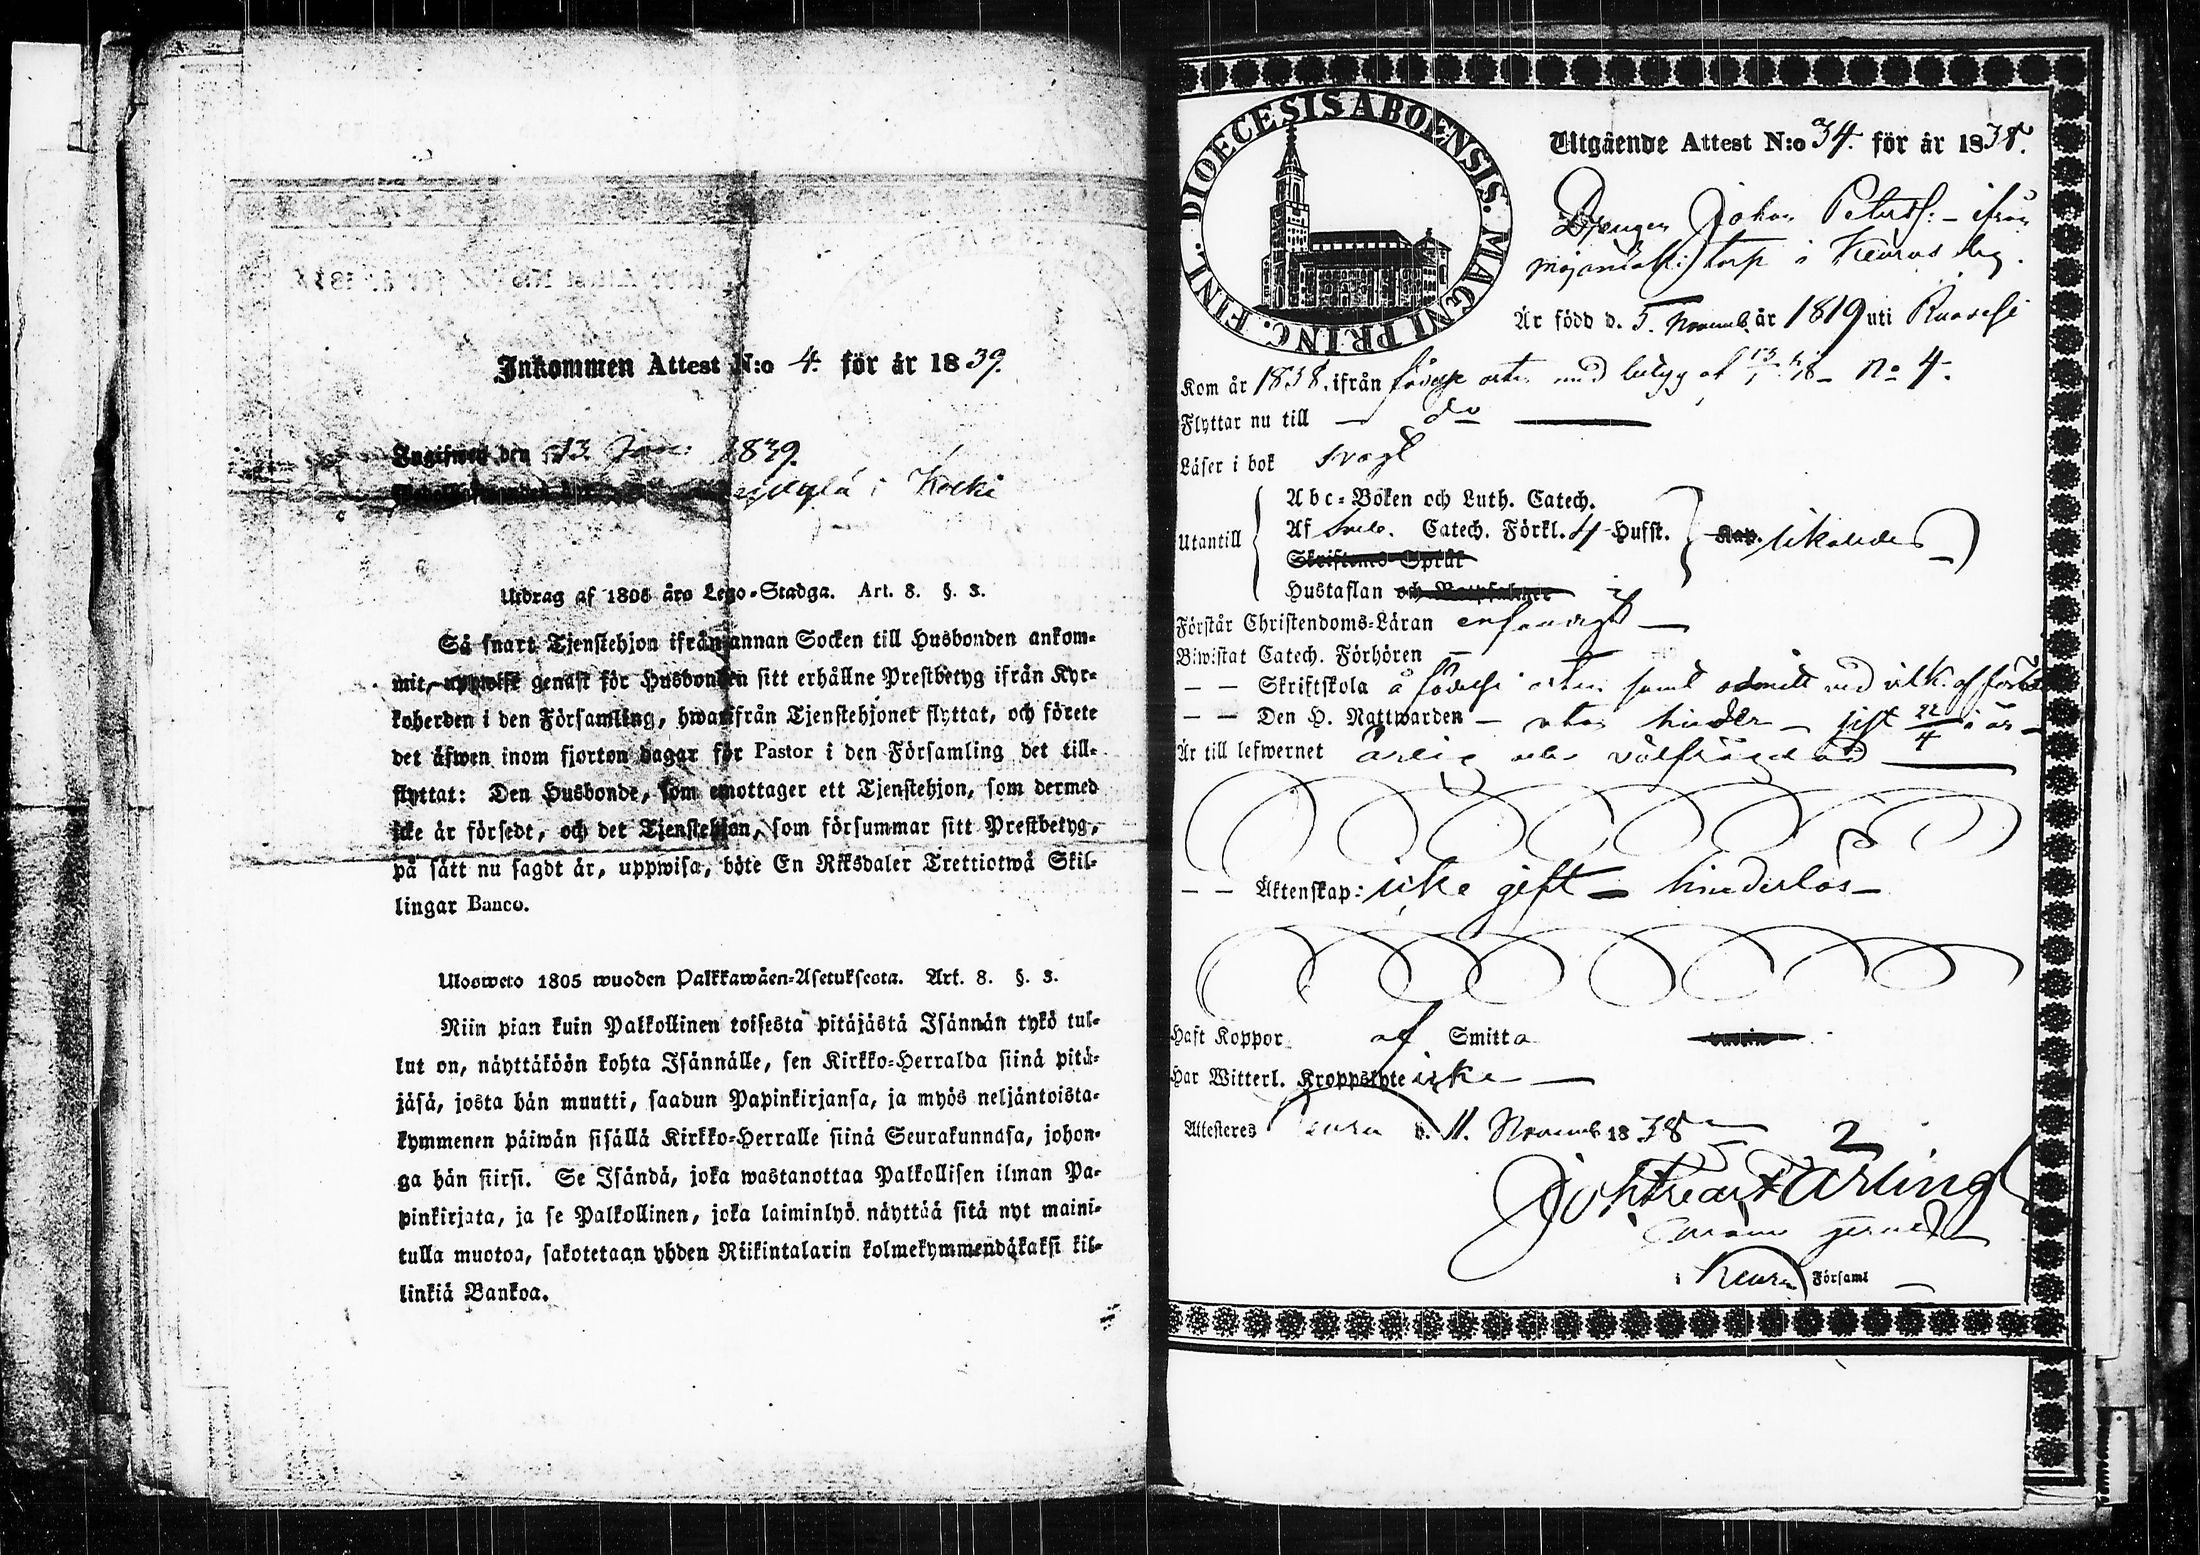 Inkommen Attest N:o 4. för år 1839.
Ingifwes den 13 Jan: 1839.
i Kocki
Utdrag af 1805 års Lego-Stadga. Art. 8. §. 3.
Så snart Tjenstehjon ifrån annan Socken till Husbonden ankom-
mit, uppwise genast för Husbonden sitt erhållne Prestbetyg ifrån Kyr-
koherden i den Församling, hwarifrån Tjenstehjonet flyttat, och förete
det äfwen inom fjorton dagar för Pastor i den Församling det till-
flyttat: Den Husbonde, som emottager ett Tjenstehjon, som dermed
icke är försedt, och det Tjenstehjon, som försummar sitt Prestbetyg,
på sätt nu sagdt är, uppwisa, böte En Riksdaler Trettiotwå Skil-
lingar Banco.
Ulosweto 1805 wuoden Palkkawäen-Asetuksesta. Art. 8. §. 3.
Niin pian kuin Palkollinen toisesta pitäjästä Isännän tykö tul-
lut on, näyttäköön kohta Isännälle, sen Kirkko-Herralda siinä pitä-
jäsä, josta hän muutti, saadun Papinkirjansa, ja myös neljäntoista-
kymmenen päiwän sisällä Kirkko-Herralle siinä Seurakunnasa, johon-
ga hän siirsi. Se Isändä, joka wastanottaa Palkollisen ilman Pa-
pinkirjata, ja se Palkollinen, joka laiminlyö näyttää sitä nyt maini-
tulla muotoa, sakotetaan yhden Riikintalarin kolmekymmendäkaksi kil-
linkiä Bankoa.
DIOECESIS ABOENSIS. MAGNI PRINC. FINL.
Utgående Attest N:o 34. för år 1838.
Drengen Johan Petersf: - ifrån
torp i Keurus deg.
Är född d. 5. Novemb. år 1819 uti Ruovesi
Kom år 1838. ifrån födelse orten med betyg af No 4.
Flyttar nu till — do —
Läser i bok svagt
Utantill
Abc-Boken och Luth. Catech.
Af Sveb. Catech. Förkl. 4 Hufst. Kap.
Skriftenes Språk
Hustaflan och Botpsalmer
Förstår Christendoms-Läran enfaldigt —
Biwistat Catech. Förhören —
— — Skriftskola å födelse orten samt admitt. med vilk. af
— — Den H. Nattwarden — utan hinder — sist 22/4 i år —
Är till lefwernet ärlig och välfrägdad —
— — Äktenskap: icke gift — hinderlös —
Haft Koppor af Smitta
Har Witterl. Kroppslyte icke —
Attesteras Keuru d. 11. Novemb. 1838
2
i Keuru Församl